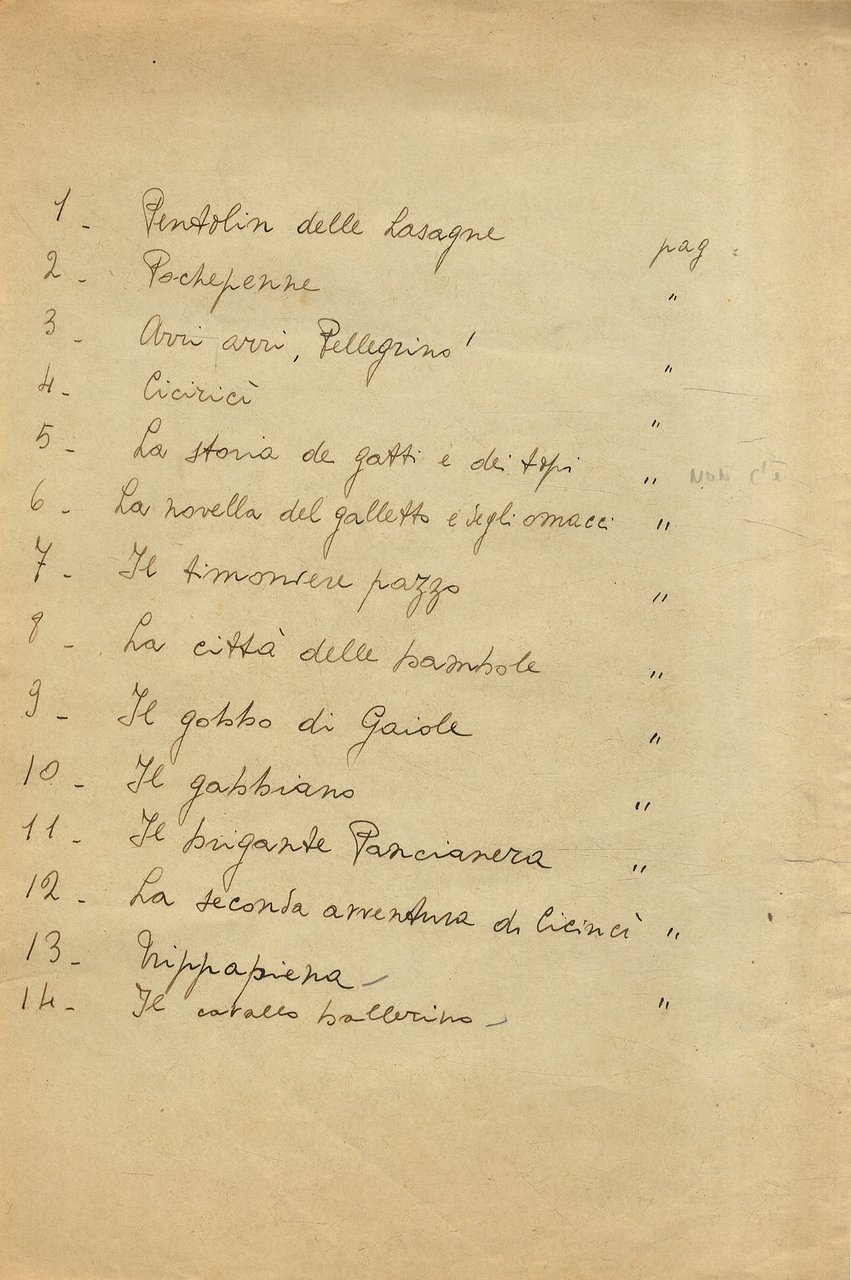 1 - Pentolin delle Lasagne pag.
2 - Pochepenne "
3 - Arri arri, Pellegrino! "
4 - Ciciricì "
5 - La storia de gatti e dei topi " non c'è
6 - La novella del galletto e degli omacci "
7 - Il timoniere pazzo "
8 - La città delle bambole "
9 - Il gobbo di Gaiole "
10 - Il gabbiano "
11 - Il brigante Pancianera "
12 - La seconda avventura di Ciciricì "
13 - Trippapiena -
14 - Il cavallo ballerino - "